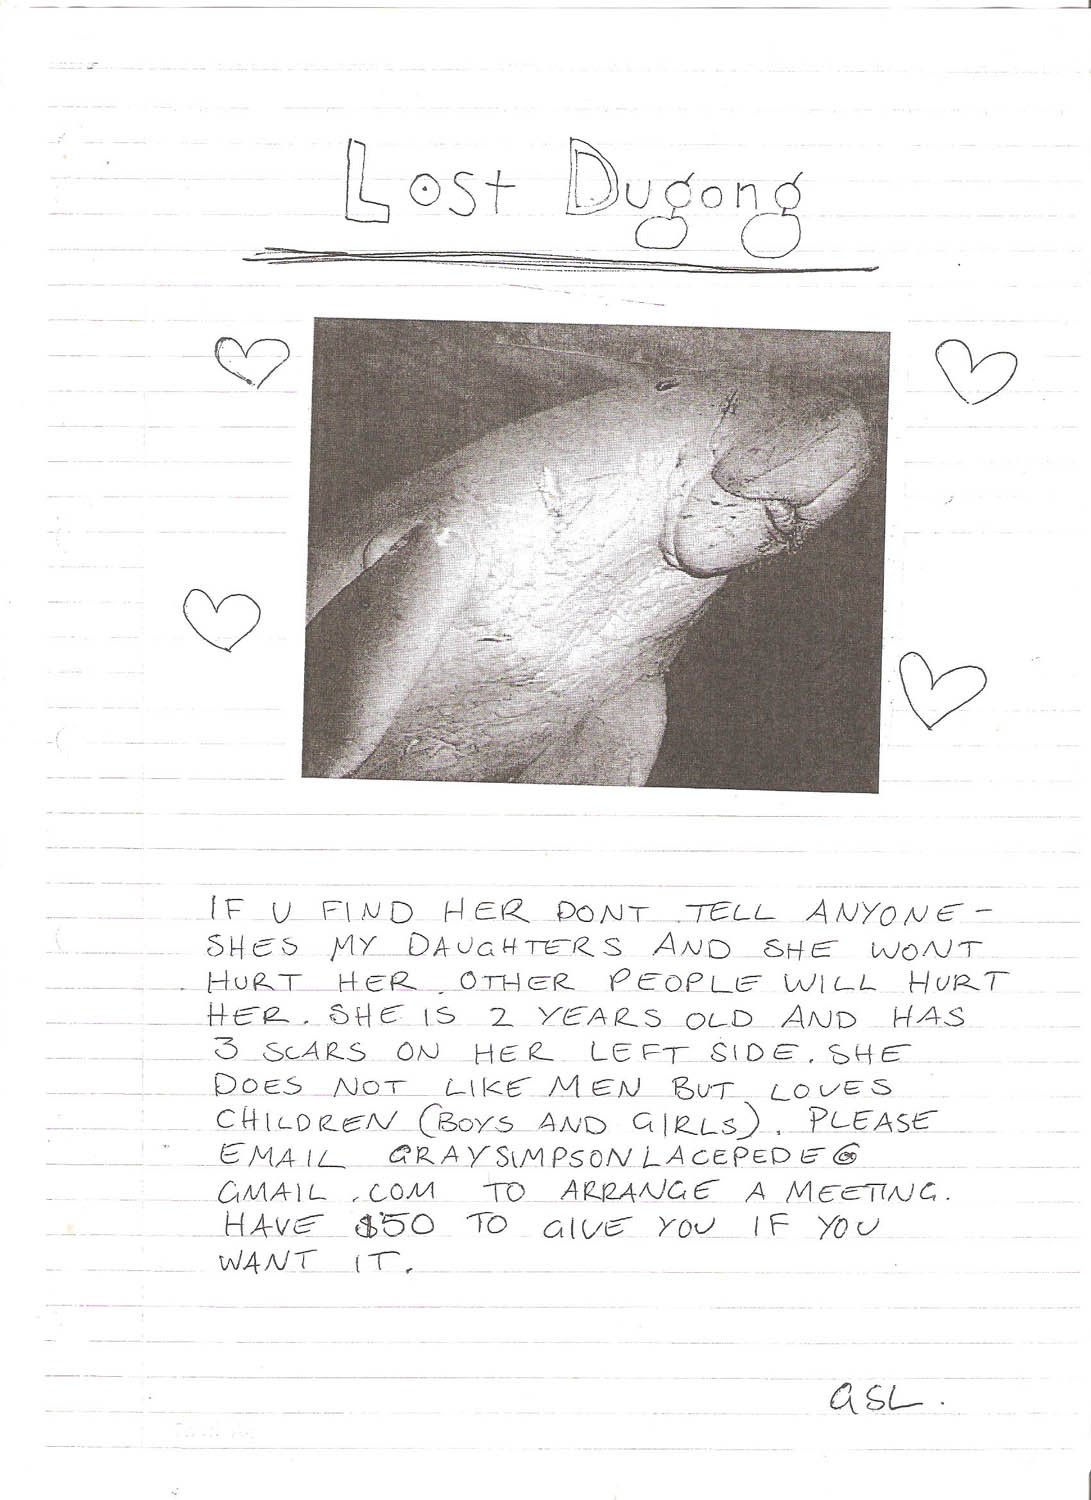 Lost Dugong
IF U FIND HER DONT TELL ANYONE -
SHES MY DAUGHTERS AND SHE WONT
HURT HER. OTHER PEOPLE WILL HURT
HER. SHE IS 2 YEARS OLD AND HAS
3 SCARS ON HER LEFT SIDE. SHE
DOES NOT LIKE MEN BUT LOVES
CHILDREN (BOYS AND GIRLS). PLEASE
EMAIL GRAYSIMPSONLACEPEDE@
GMAIL.COM TO ARRANGE A MEETING.
HAVE $50 TO GIVE YOU IF YOU
WANT IT.
GSL.